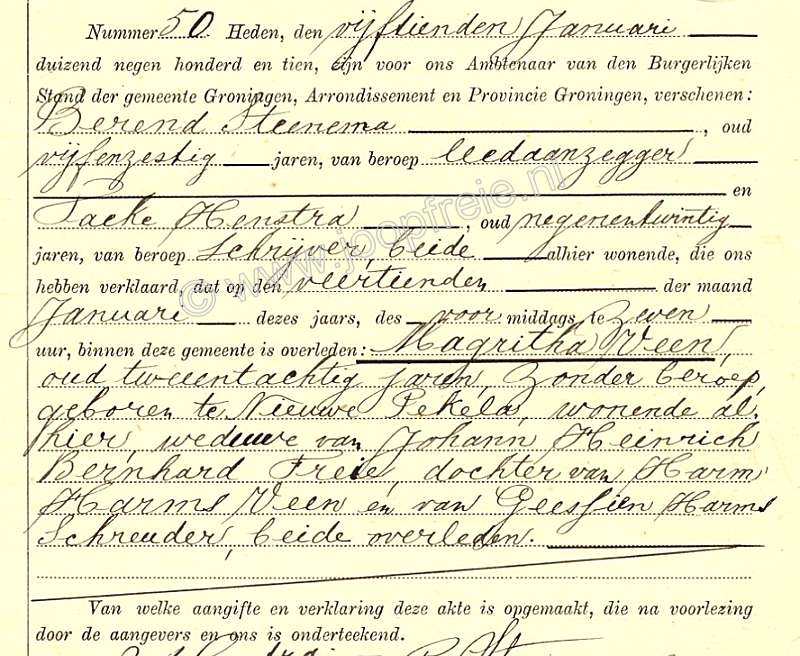 Nummer 50 Heden, den vijftienden Januari
duizend negen honderd en tien, zijn voor ons Ambtenaar van den Burgerlijken
Stand der gemeente Groningen, Arrondissement en Provincie Groningen, verschenen:
Berend Steenema, oud
vijfenzestig jaren, van beroep leedaanzegger
en
Taeke Henstra, oud negenentwintig
jaren, van beroep Schrijver, beide alhier wonende, die ons
hebben verklaard, dat op den veertienden der maand
Januari dezes jaars, des voor middags te zeven
uur, binnen deze gemeente is overleden: Magritha Veen,
oud tweeentachtig jaren, zonder beroep,
geboren te Nieuwe Pekela, wonende al,
hier, weduwe van Johann Heinrich
Bernhard Freie, dochter van Harm
Harms Veen en van Geessien Harms
Schreuder, beide overleden.
Van welke aangifte en verklaring deze akte is opgemaakt, die na voorlezing
door de aangevers en ons is onderteekend.
© www.joopfreie.nl